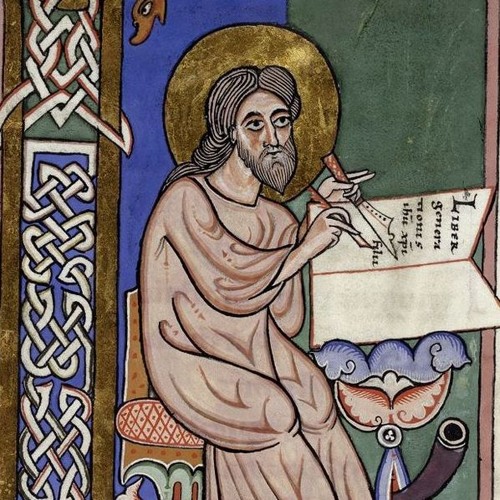 LIBER
genera
tionis
ihu xpi
filii